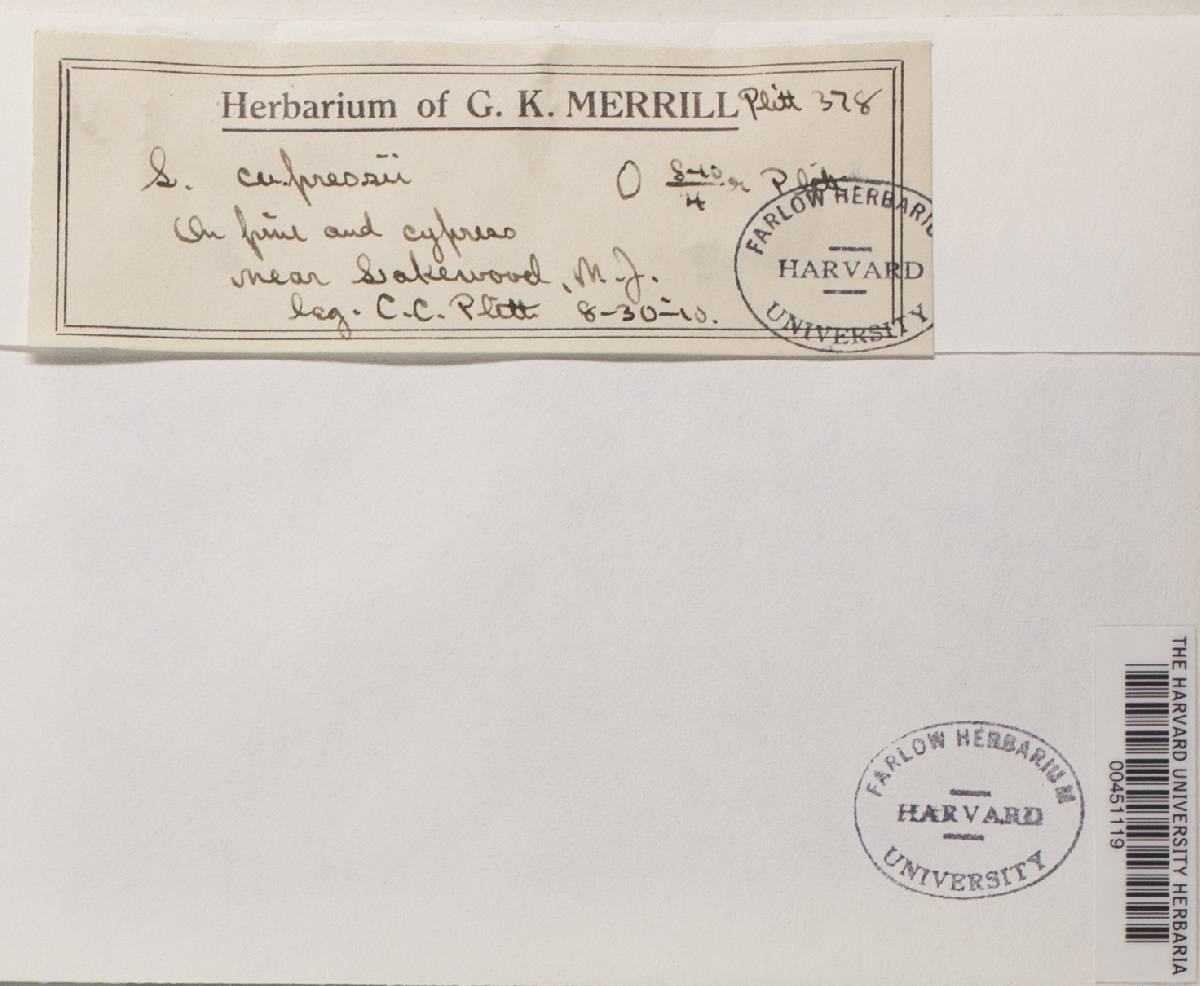 Herbarium of G. K. MERRILL Plitt 378
S. cupressii O 8-10/4 Plitt
On pine and cypress
near Lakewood, N.J.
leg. C.C. Plitt 8-30-10.
FARLOW HERBARIU
HARVARD
UNIVERSITY
FARLOW HERBARIUM
HARVARD
UNIVERSITY
THE HARVARD UNIVERSITY HERBARIA
00451119